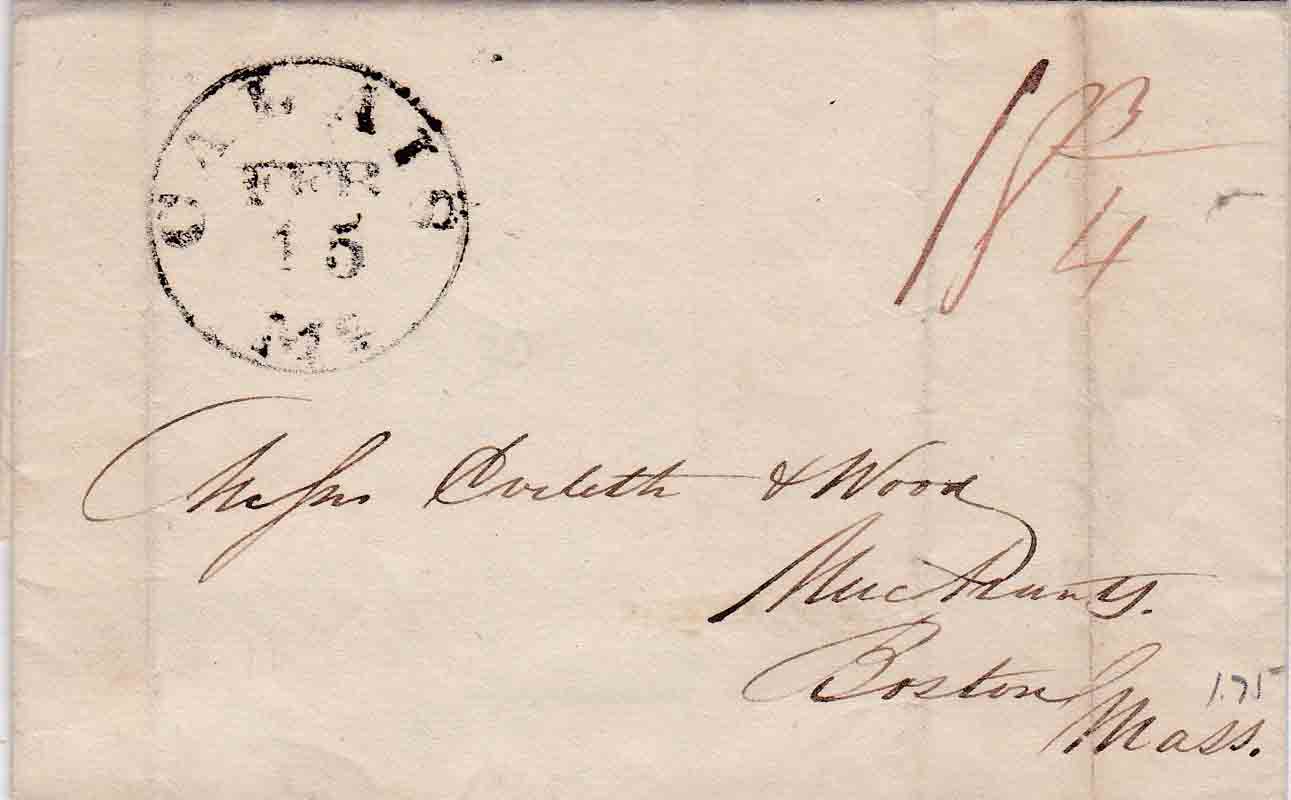 CALAIS
FEB
15
Me
18 3/4
Messrs Eveleth & Wood
Merchants.
Boston
Mass.
1.75